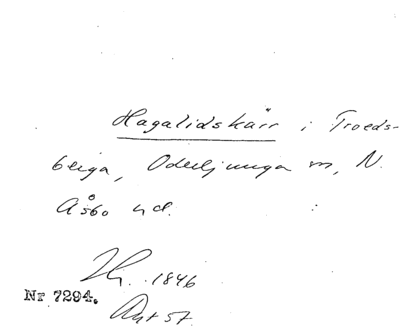 Hagalidskärr i Troeds-
berga, Oderljunga sn, N.
Åsbo hd.
1846
Nr 7294.
Akt 57.